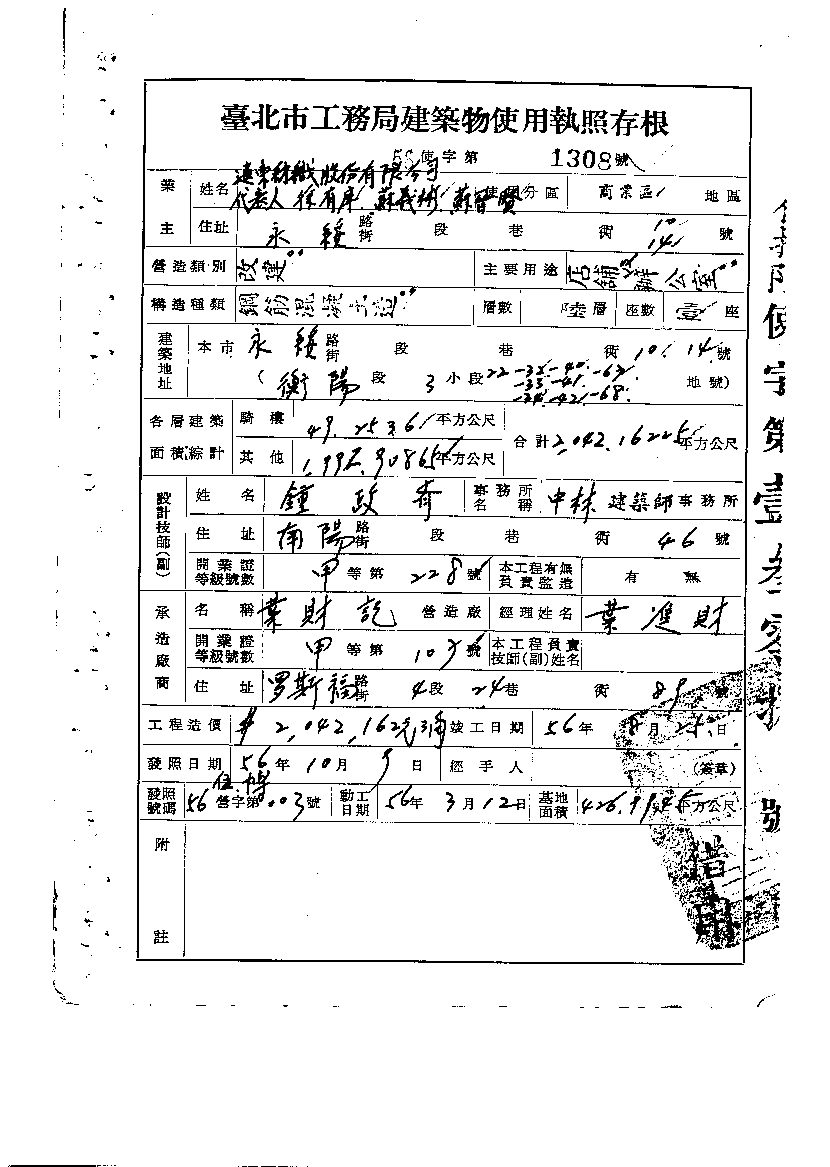 臺北市工務局建築物使用執照存根
56使字第 1308號
業主 姓名 遠東紡織股份有限公司
代表人 徐有庠 蘇義彬 蘇晉賢 使用分區 商業區 地區
住址 永綏 路街 段 巷 衖 10 14 號
營造類別 改建 主要用途 店舖辦公室
構造種類 鋼筋混凝土造 層數 陸層 座數 壹座
建築地址 本市 永綏 路街 段 巷 衖 10. 14 號
( 衡陽段 3小段 地號)
各層建築面積綜計 騎樓 49.2536平方公尺 合計 2,042.16225平方公尺
其他 1,992.90865平方公尺
設計技師(副) 姓名 鍾政奔 事務所名稱 中林建築師事務所
住址 南陽 路街 段 巷 衖 46 號
開業證等級號數 甲等第 228號 本工程有無負責監造 有 無
承造廠商 名稱 葉財記 營造廠 經理姓名 葉進財
開業證等級號數 甲等第 號 本工程負責技師(副)姓名
住址 罗斯福 路街 4段 24巷 衖 89 號
工程造價 2,042,162元 竣工日期 56年 8月 日
發照日期 56年10月9日 經手人 (簽章)
發照號碼 56營字第003號 動工日期 56年3月12日 基地面積 平方公尺
附註
使字第壹參零捌號
借用